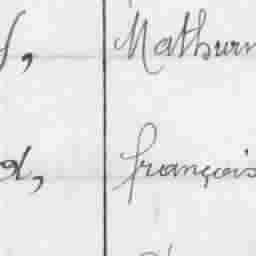 Mathurin
françois